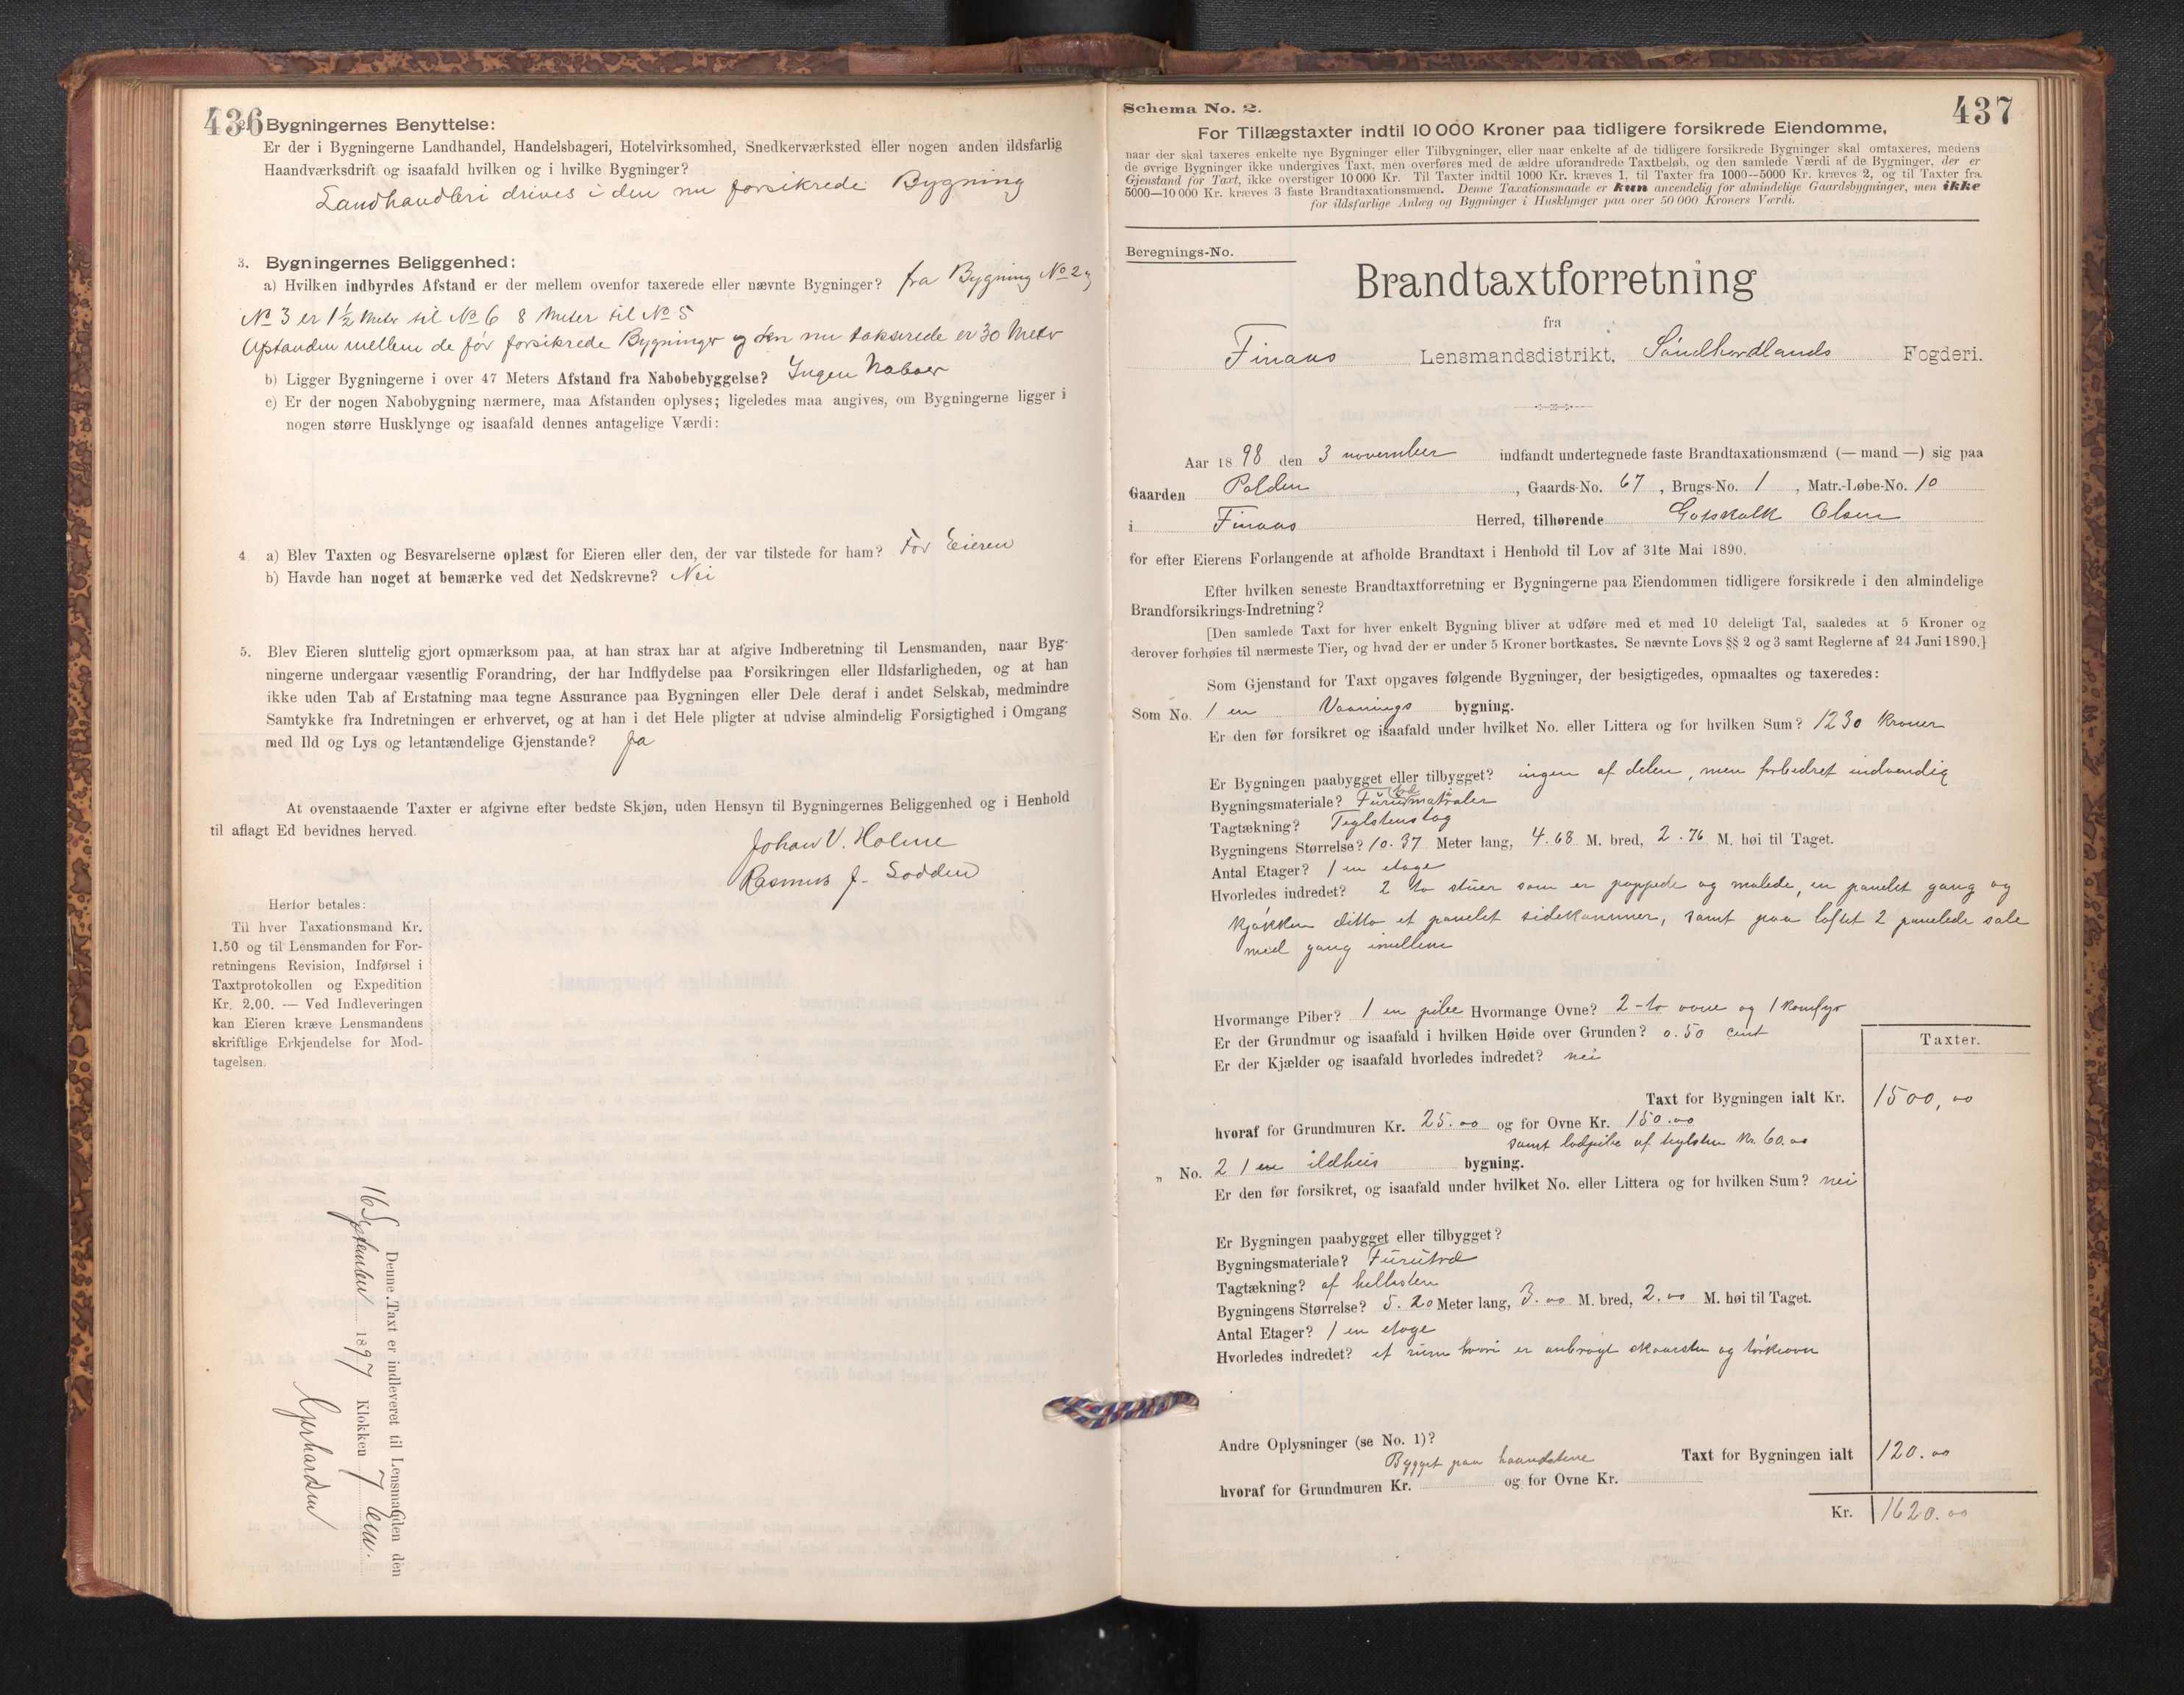 436
2. Bygningernes Benyttelse:
Er der i Bygningerne Landhandel, Handelsbageri, Hotelvirksomhed, Snedkerværksted eller nogen anden ildsfarlig
Haandværksdrift og isaafald hvilken og i hvilke Bygninger?
Landhandleri drives i den nu forsikrede Bygning
3. Bygningernes Beliggenhed:
a) Hvilken indbyrdes Afstand er der mellem ovenfor taxerede eller nævnte Bygninger? fra Bygning No 2 og
No 3 er 1 1/2 Meter til No 6 8 Meter til No 5
Afstanden mellem de før forsikrede Bygninger og den nu takserede er 30 Meter
b) Ligger Bygningerne i over 47 Meters Afstand fra Nabobebyggelse? Ingen Naboer
c) Er der nogen Nabobygning nærmere, maa Afstanden oplyses; ligeledes maa angives, om Bygningerne ligger i
nogen større Husklynge og isaafald dennes antagelige Værdi:
4. a) Blev Taxten og Besvarelserne oplæst for Eieren eller den, der var tilstede for ham? For Eieren
b) Havde han noget at bemærke ved det Nedskrevne? Nei
5. Blev Eieren sluttelig gjort opmærksom paa, at han strax har at afgive Indberetning til Lensmanden, naar Byg-
ningerne undergaar væsentlig Forandring, der har Indflydelse paa Forsikringen eller Ildsfarligheden, og at han
ikke uden Tab af Erstatning maa tegne Assurance paa Bygningen eller Dele deraf i andet Selskab, medmindre
Samtykke fra Indretningen er erhvervet, og at han i det Hele pligter at udvise almindelig Forsigtighed i Omgang
med Ild og Lys og letantændelige Gjenstande? Ja
At ovenstaaende Taxter er afgivne efter bedste Skjøn, uden Hensyn til Bygningernes Beliggenhed og i Henhold
til aflagt Ed bevidnes herved.
Johan V. Holme
Rasmus J. Lodden
Herfor betales:
Til hver Taxationsmand Kr.
1.50 og til Lensmanden for For-
retningens Revision, Indførsel i
Taxtprotokollen og Expedition
Kr. 2.00. — Ved Indleveringen
kan Eieren kræve Lensmandens
skriftlige Erkjendelse for Mod-
tagelsen.
Denne Taxt er indleveret til Lensmanden den
16 September 1897 Klokken 7 em.
Gjerhardsen
437
Schema No. 2.
For Tillægstaxter indtil 10 000 Kroner paa tidligere forsikrede Eiendomme,
naar der skal taxeres enkelte nye Bygninger eller Tilbygninger, eller naar enkelte af de tidligere forsikrede Bygninger skal omtaxeres, medens
de øvrige Bygninger ikke undergives Taxt, men overføres med de ældre uforandrede Taxtbeløb, og den samlede Værdi af de Bygninger, der er
Gjenstand for Taxt, ikke overstiger 10 000 Kr. Til Taxter indtil 1000 Kr. kræves 1, til Taxter fra 1000—5000 Kr. kræves 2, og til Taxter fra
5000—10 000 Kr. kræves 3 faste Brandtaxationsmænd. Denne Taxationsmaade er kun anvendelig for almindelige Gaardsbygninger, men ikke
for ildsfarlige Anlæg og Bygninger i Husklynger paa over 50 000 Kroners Værdi.
Beregnings-No.
Brandtaxtforretning
fra
Finaas Lensmandsdistrikt, Søndhordlands Fogderi.
Aar 1898 den 3 november indfandt undertegnede faste Brandtaxationsmænd (— mand —) sig paa
Gaarden Polden, Gaards-No. 67, Brugs-No. 1, Matr.-Løbe-No. 10
i Finaas Herred, tilhørende Gotskalk Olsen
for efter Eierens Forlangende at afholde Brandtaxt i Henhold til Lov af 31te Mai 1890.
Efter hvilken seneste Brandtaxtforretning er Bygningerne paa Eiendommen tidligere forsikrede i den almindelige
Brandforsikrings-Indretning?
[Den samlede Taxt for hver enkelt Bygning bliver at udføre med et med 10 deleligt Tal, saaledes at 5 Kroner og
derover forhøies til nærmeste Tier, og hvad der er under 5 Kroner bortkastes. Se nævnte Lovs §§ 2 og 3 samt Reglerne af 24 Juni 1890.]
Som Gjenstand for Taxt opgaves følgende Bygninger, der besigtigedes, opmaaltes og taxeredes:
Som No. 1 en Vaanings bygning.
Er den før forsikret og isaafald under hvilket No. eller Littera og for hvilken Sum? 1230 kroner
Er Bygningen paabygget eller tilbygget? ingen af delen, men forbedret indvendig
Bygningsmateriale? Furu træ matrialer
Tagtækning? Teglstenstag
Bygningens Størrelse? 10.37 Meter lang, 4.68 M. bred, 2.76 M. høi til Taget.
Antal Etager? 1 en etage
Hvorledes indredet? 2 to stuer som er pappede og malede, en panelet gang og
kjøkken ditto et panelet sidekammer, samt paa loftet 2 panelede sale
med gang imellem
Hvormange Piber? 1 en pibe Hvormange Ovne? 2 - to ovne og 1 komfyr
Er der Grundmur og isaafald i hvilken Høide over Grunden? 0.50 cent
Er der Kjælder og isaafald hvorledes indredet? nei
Taxter.
Taxt for Bygningen ialt Kr. 1500,00
hvoraf for Grundmuren Kr. 25.00 og for Ovne Kr. 150.00
samt lodpibe af teglsten Kr. 60.00
„ No. 2 1 en ildhus bygning.
Er den før forsikret, og isaafald under hvilket No. eller Littera og for hvilken Sum? nei
Er Bygningen paabygget eller tilbygget?
Bygningsmateriale? Furutræ
Tagtækning? af hellesten
Bygningens Størrelse? 5.20 Meter lang, 3.00 M. bred, 2.00 M. høi til Taget.
Antal Etager? 1 en etage
Hvorledes indredet? et rum hvori er anbragt skorsten og tørkeovn
Andre Oplysninger (se No. 1)?
Bygget paa haandstene Taxt for Bygningen ialt 120.00
hvoraf for Grundmuren Kr. og for Ovne Kr.
Kr. 1620.00